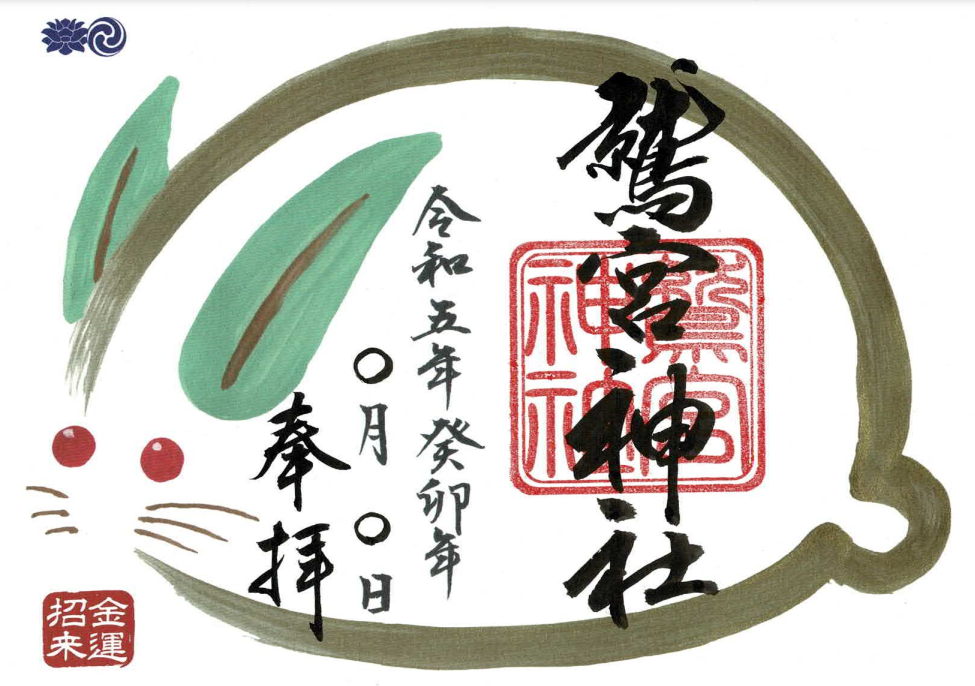 鷲宮神社
鷲宮
神社
令和五年癸卯年
〇月〇日
奉拝
金運
招来